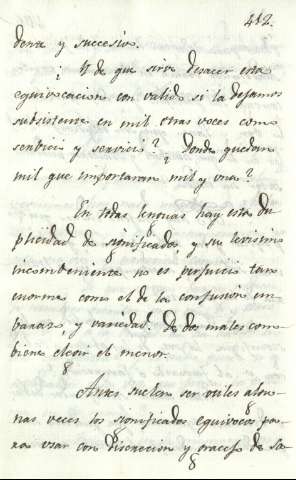 412.
dente y succesivo.
¿Y de que sirve desacer esta
equivocacion con valido si la dejamos
subsistente en mil otras voces como
servicio y servicis? ¿Donde quedan
mil que importaran mil y una?
En todas lenguas hay esta du
plicidad de significados, y su levisimo
incombeniente no es perjuicio tan
enorme como el de la confusion em
barazo, y variedad. De dos males com
biene elegir el menor.
Antes suelen ser utiles algu
nas veces los significados equivocos pa
ra usar con discrecion y gracejo de sa